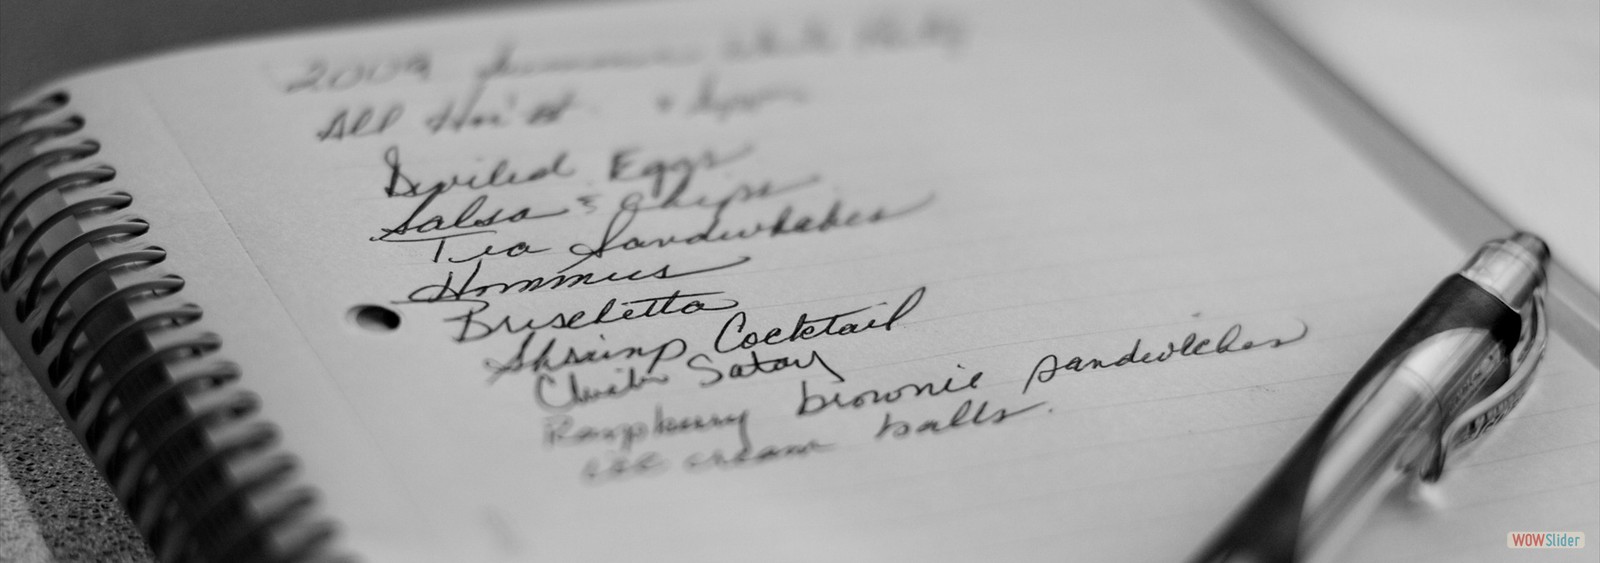 2009 Summer White Party
All Hor's
Deviled Eggs
Salsa & Chips
Tea Sandwhiches
Hommus
Bruschetta
Shrimp Cocktail
Satay
Raspberry brownie sandwiches
ice cream balls.
WOWSlider